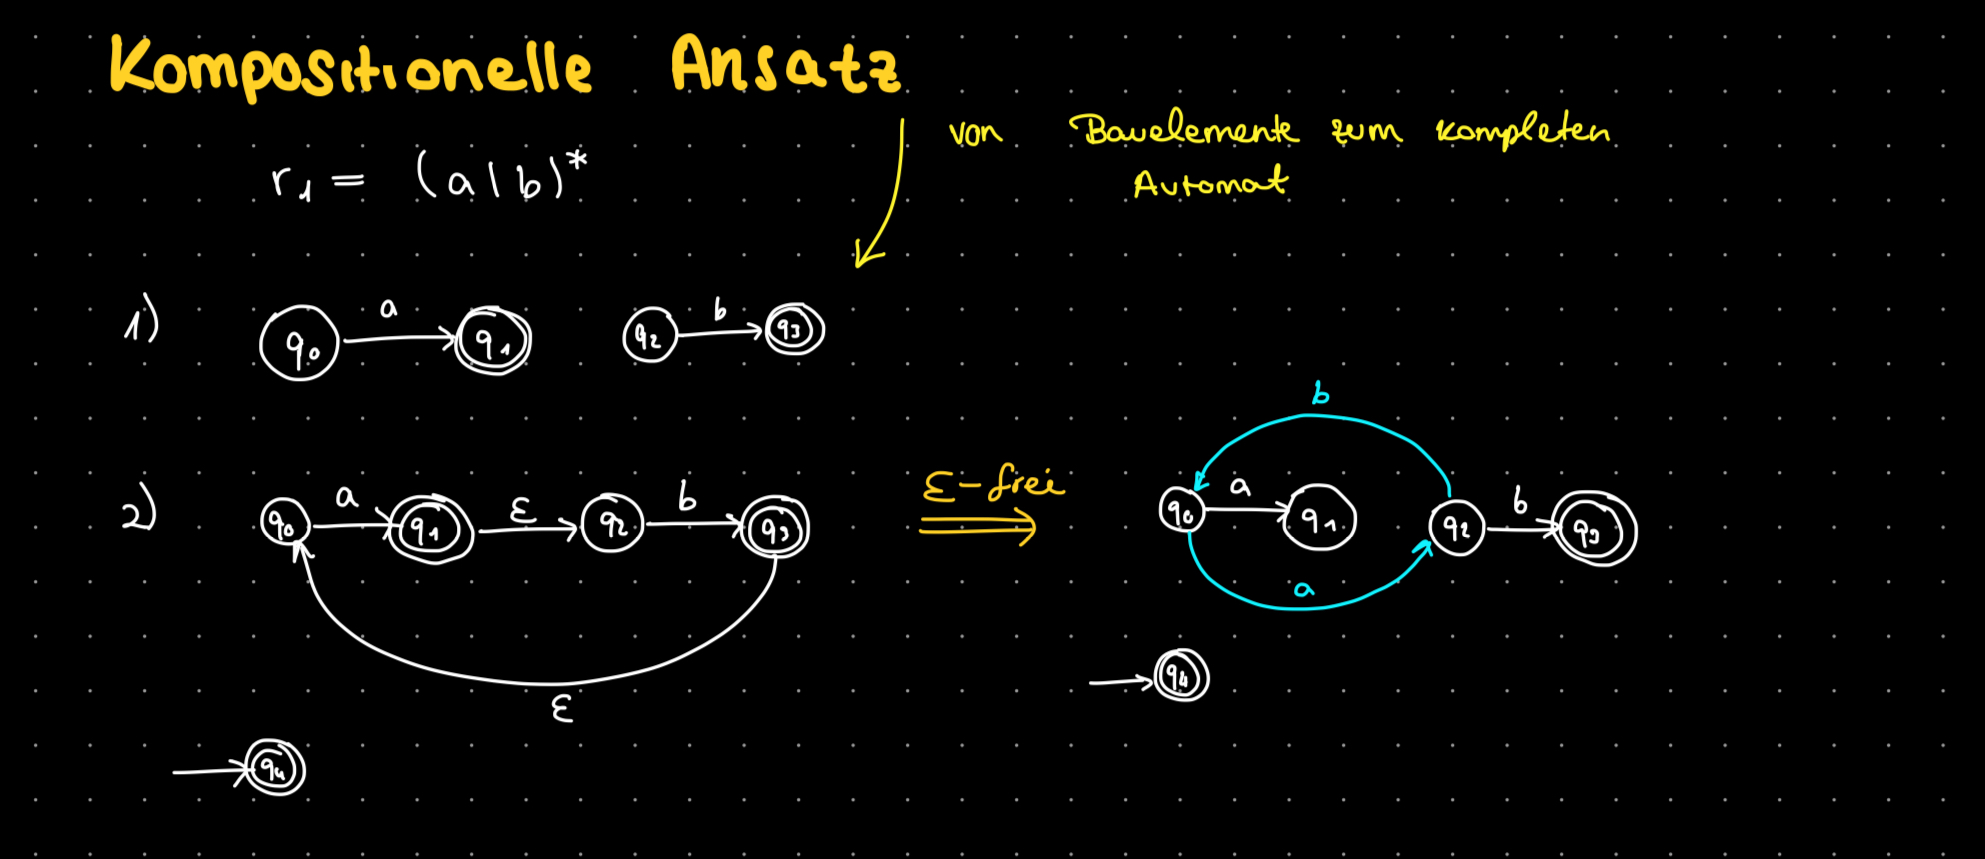 Kompositionelle Ansatz
von Bauelemente zum kompleten
Automat
r₁ = (a|b)*
1) q₀ a q₁ q₂ b q₃
2) q₀ a q₁ ε q₂ b q₃ ε
ε-frei
b
q₀ a q₁ q₂ b q₃
a
q₄
q₄